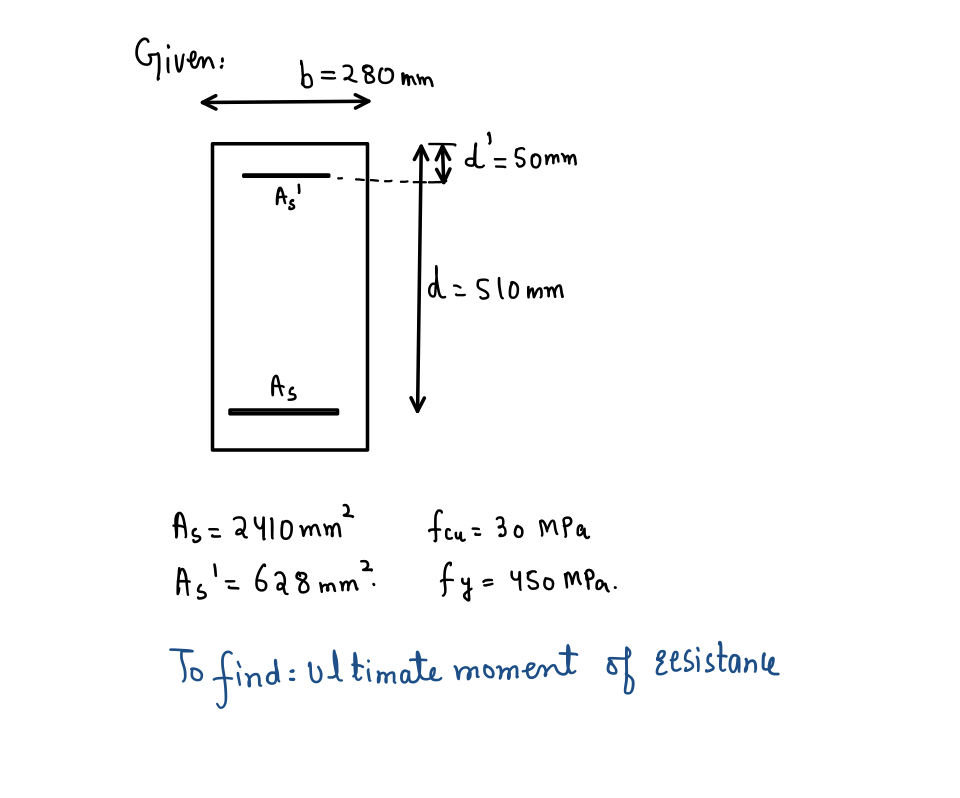 Given:
b = 280 mm
d' = 50mm
As'
d = 510 mm
As
As = 2410 mm² fcu = 30 MPa
As' = 628 mm². fy = 450 MPa.
To find: Ultimate moment of resistance